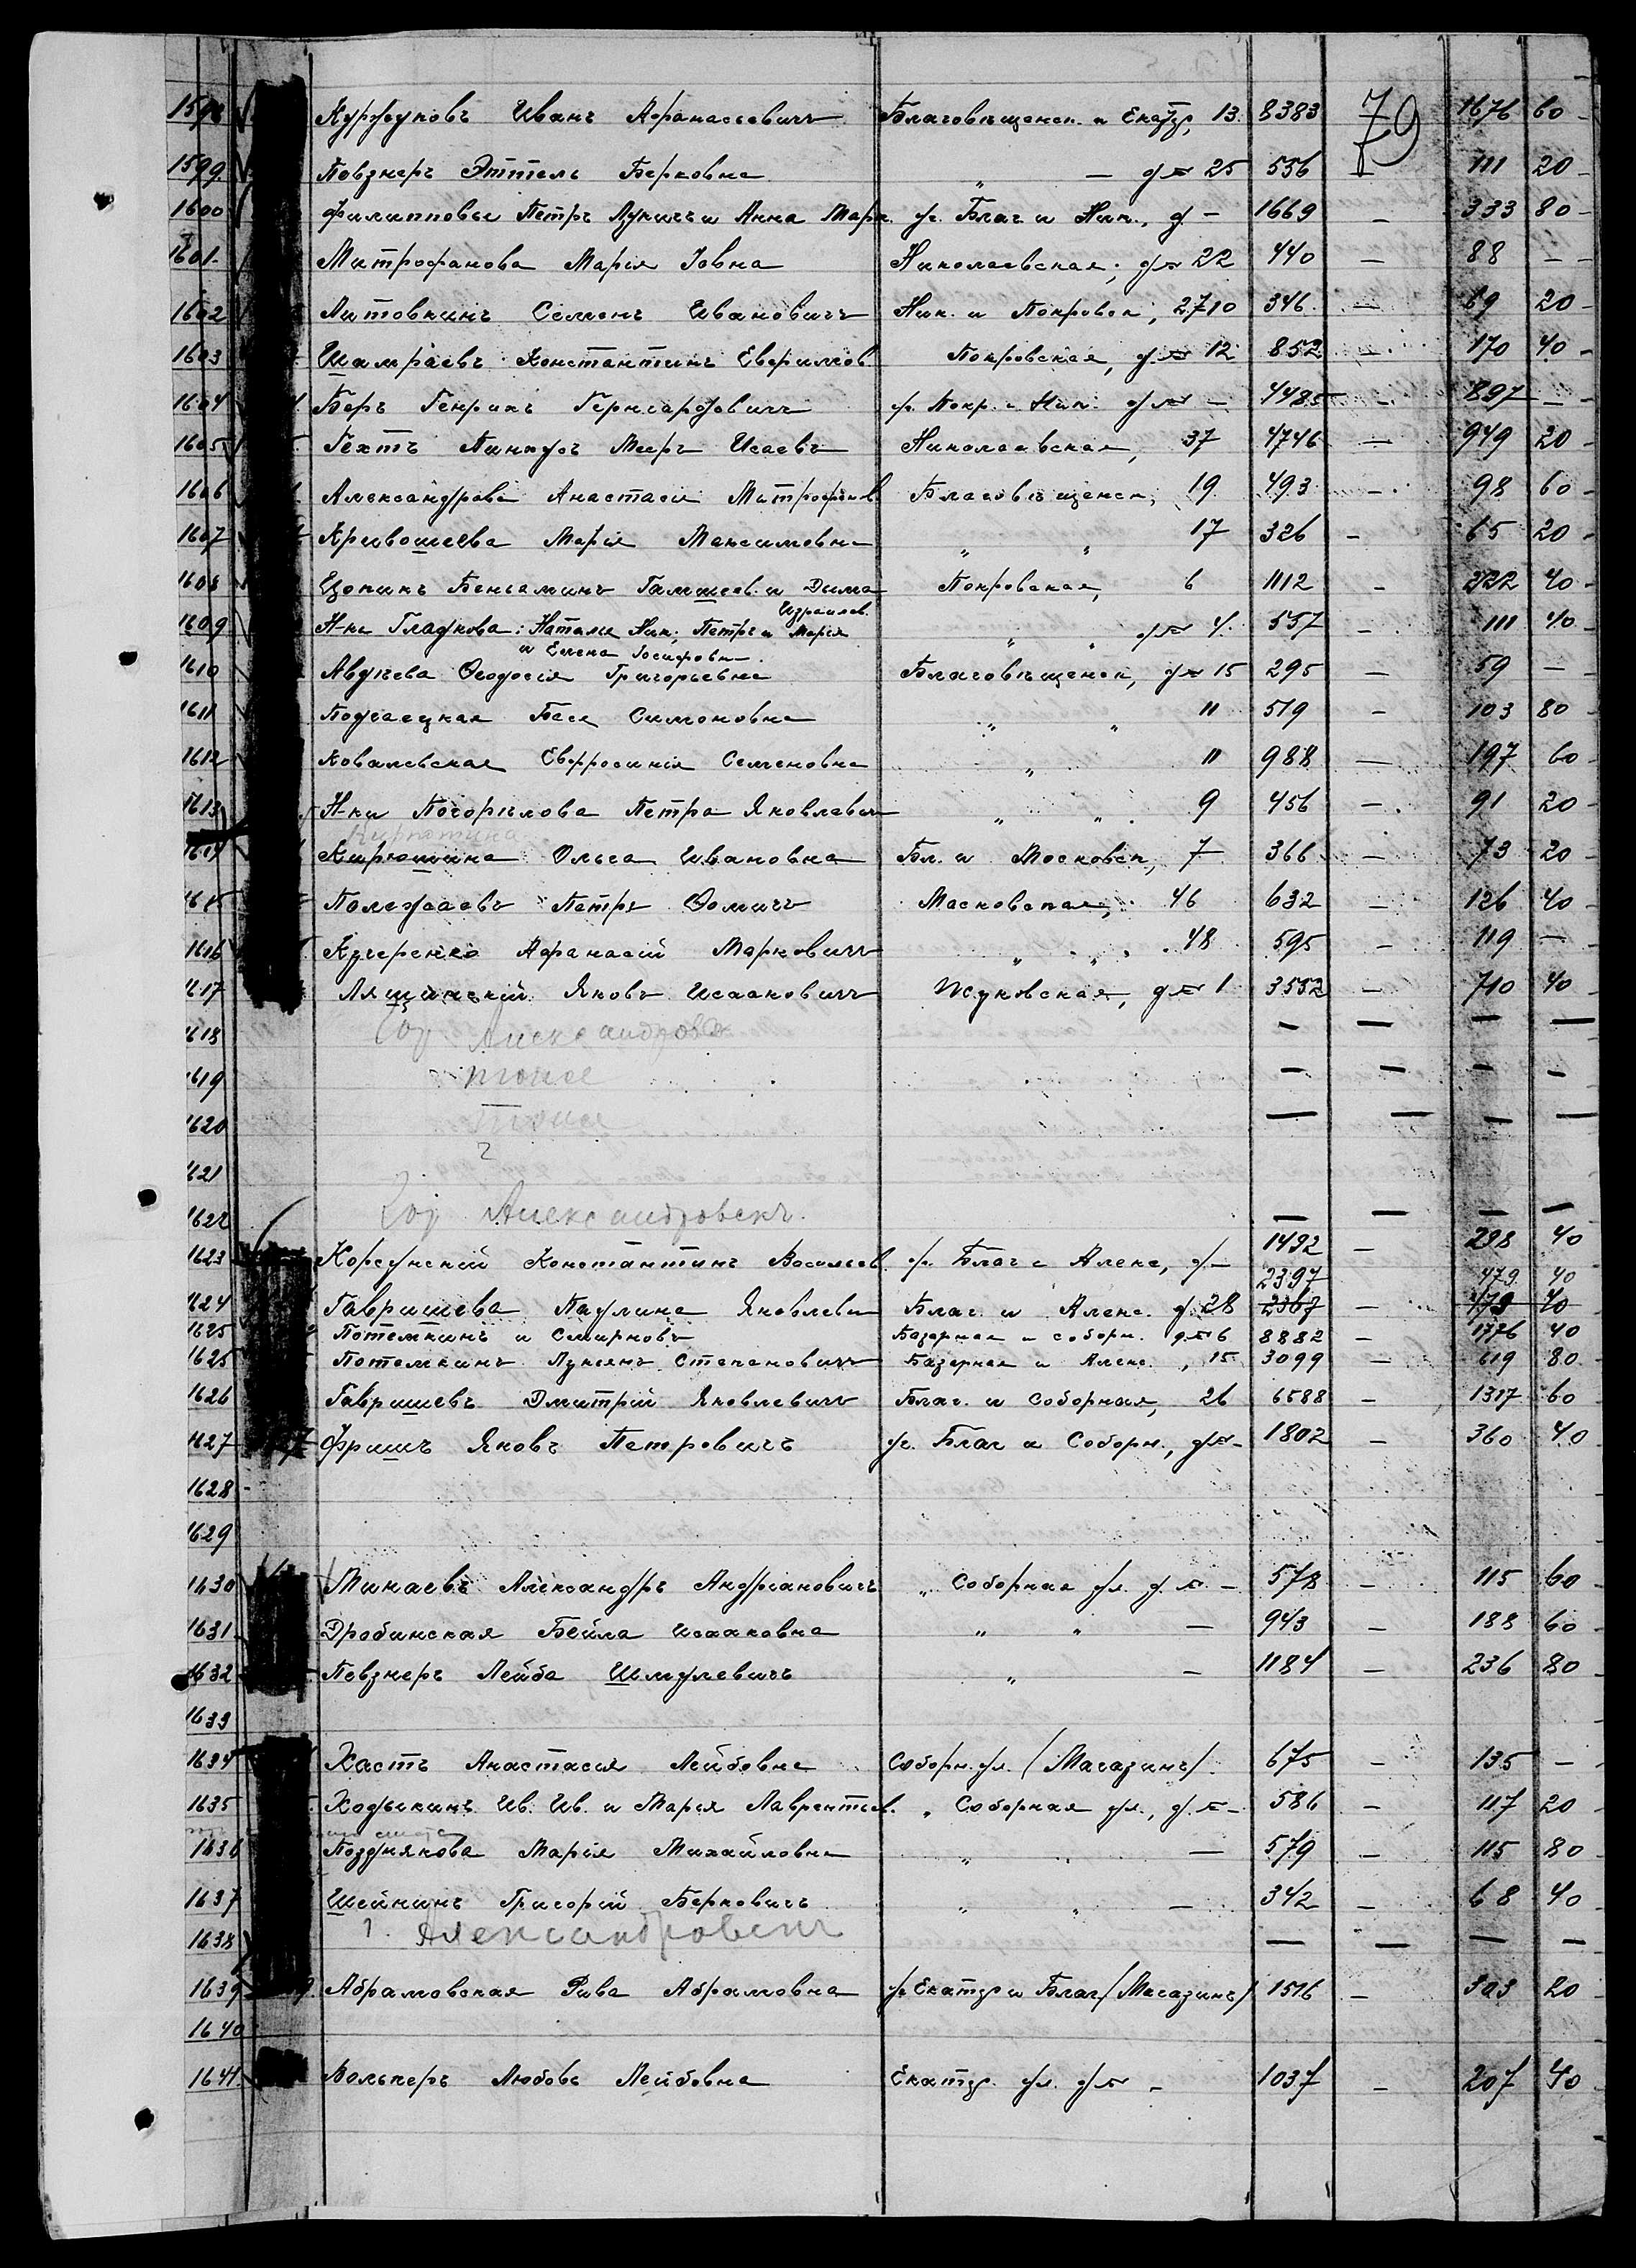 79
1598 Куржуповъ Иванъ Афанасьевичъ Благовѣщенск. и Екатр, 13. 8383 1676 60 -
1599. Повзнеръ Эттель Берковна " — д№ 25 556 111 20 -
1600 Филипповы Петръ Лукичъ и Анна Марк. уг. Благ и Ник., д. - 1669 - 333 80 -
1601. Митрофанова Марія Іовна Николаевская, д№ 22 440 - 88 - -
1602 Литовкинъ Семенъ Ивановичъ Ник. и Покровск, 27/10 346 - 69 20 -
1603 Шамраевъ Константинъ Евфимов. Покровская, д№ 12 852 - 170 40 -
1604 Беръ Генрихъ Гернгардовичъ уг. Покр. и Ник. д№ - 4485 - 897 - -
1605 Гехтъ Пинкусъ Меер Исаевъ Николаевская, 37 4746 - 949 20 -
1606 Александрова Анастасія Митрофанов. Благовѣщенск, 19 493 - 98 60 -
1607 Кривошеева Марія Максимовна " " 17 326 - 65 20 -
1608 Цопинъ Беньаминъ Гамшеев. и Дыма Покровская, 6 1112 - 222 40 -
Израилев.
1609 Н-ки Гладкова: Наталья Ник., Петръ и Марія " " д№ 4. 557 - 111 40 -
и Елена Іосифовн.
1610 Авдѣева Ѳеодосія Григорьевна Благовѣщенск, д№ 15 295 - 59 -
1611 Подгаецкая Бася Симоновна " " 11 519 - 103 80 -
1612 Ковалевская Евфросинія Семеновна " 11 988 - 197 60 -
1613 Н-ки Погорѣлова Петра Яковлевич " " 9 456 - 91 20 -
Кирютина
1614 Кирюшина Ольга Ивановна Бл. и Московск, 7 366 - 73 20 -
1615 Полежаевъ Петръ Ѳомичъ Московская, 46 632 - 126 40 -
1616 Кучеренко Афанасій Марковичъ " " 48 595 - 119 -
1617 Лящинскій Яковъ Исааковичъ Жуковская, д№ 1 3552 - 710 40 -
1618 Гор. Александровск — — — —
1619 тоже — — — —
1620 Тоже — — — —
?
1621
1622 Гор Александровскъ. — — — —
1623 Корсунскій Константинъ Васильев. уг. Благ и Алекс, д- 1492 - 298 40
2397 479 40
1624 Гавришева Паулина Яковлевн Благ. и Алекс. д. 28 2367 - 473 40
1625 Потемкинъ и Смирновъ Базарная и соборн. д№ 6 8882 - 1776 40
1625 Потемкинъ Лукьянъ Степановичъ Базарная и Алекс. , 15 3099 - 619 80
1626 Гавришевъ Дмитрій Яковлевичъ Благ. и Соборная, 26 6588 - 1317 60
1627 Фришъ Яковъ Петровичъ уг. Благ и Соборн., д№- 1802 - 360 40
1628
1629
1630 Минаевъ Александръ Андріановичъ " Соборная ул. д. № - 578 - 115 60 -
1631 Дробинская Бейла Исааковна " " — 943 - 188 60 -
1632 Певзнеръ Лейба Шмулевичъ " - 1184 - 236 80 -
1633
1634 Хастъ Анастасія Лейбовна Соборн. ул. (Магазинъ). 675 - 135 -
1635 Ходыкинъ Ив. Ив. и Марія Лаврентьев. " Соборная ул., д. №- 586 - 117 20 -
1636 Позднякова Марія Михайловна " " — 579 - 115 80 -
1637 Шейнинъ Григорій Берковичъ " " — 342 - 68 40 -
1638 г. Александровскъ — — — —
1639 Абрамовская Рива Абрамовна уг. Екатр и Благ (Магазинъ) 1516 - 303 20 -
1640
1641. Вольперъ Любовь Лейбовна Екатр. ул. д№ - 1037 - 207 40 -